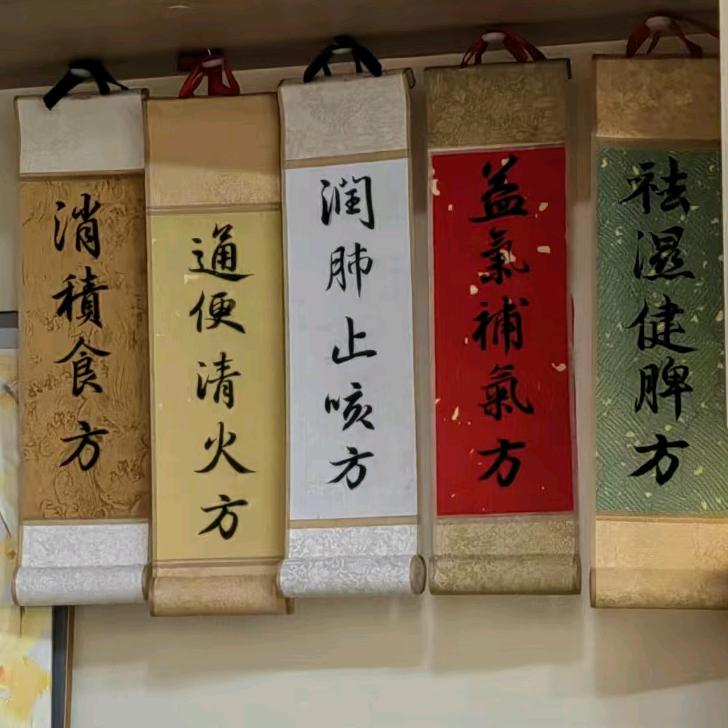 消積食方
通便清火方
潤肺止咳方
益氣補氣方
祛濕健脾方